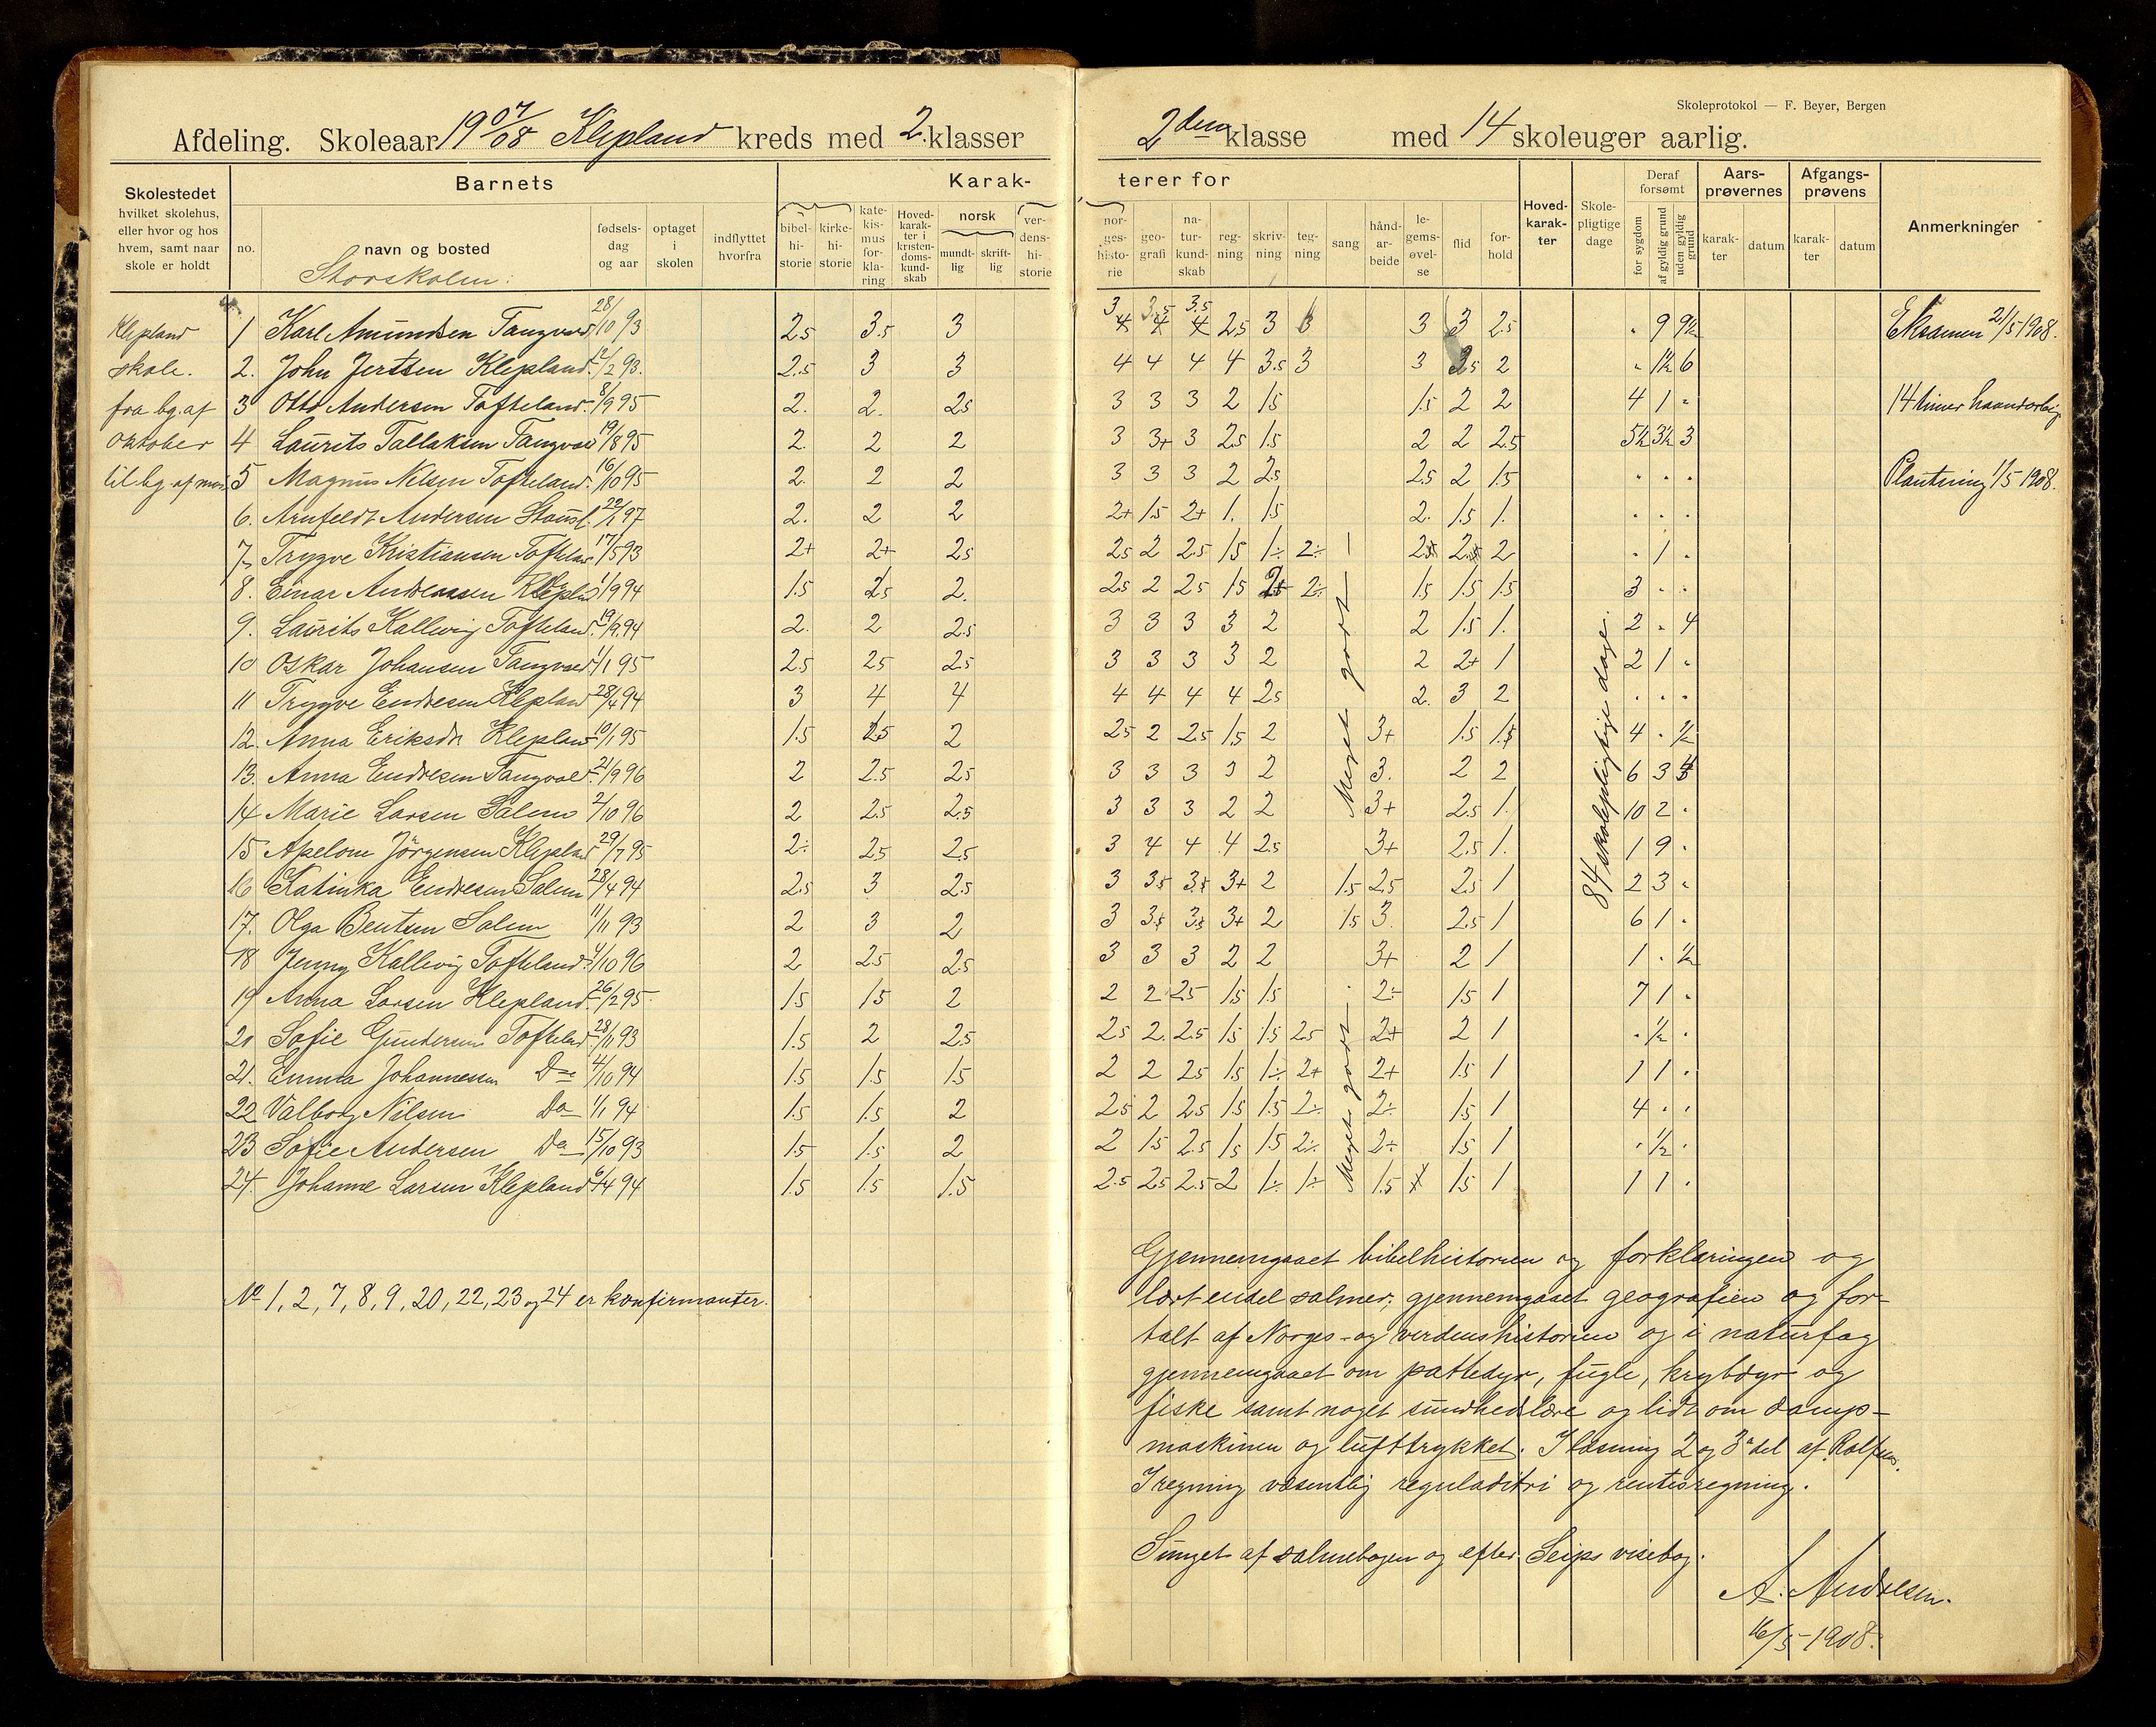 Skoleprotokol — F. Beyer, Bergen
Afdeling. Skoleaar 1907/08 Klepland kreds med 2. klasser 2den klasse med 14 skoleuger aarlig.
Skolestedet hvilket skolehus, eller hvor og hos hvem, samt naar skole er holdt
Barnets
no. navn og bosted fødsels-dag og aar optaget i skolen indflyttet hvorfra
Storskolen.
Karakterer for
bibel-hi-storie kirke-hi-storie kate-kis-mus for-kla-ring Hoved-karak-ter i kristen-doms-kund-skab norsk mundt-lig skrift-lig ver-dens-hi-storie
nor-ges-histo-rie geo-grafi na-tur-kund-skab reg-ning skriv-ning teg-ning sang hånd-ar-beide le-gems-øvel-se flid for-hold
Hoved-karak-ter Skole-pligtige dage Deraf forsømt for sygdom af gyldig grund uden gyldig grund
Aars-prøvernes karak-ter datum Afgangs-prøvens karak-ter datum Anmerkninger
Klepland 1 Karl Amundsen Tangvald 28/10 93 2.5 3.5 3 2.5 3 3 3 2.5 " 9 9½ Eksamen 2/5 1908.
skole. 2. John Jerstsen Klepland 2.5 3 3 4 4 4 4 3.5 3 3 2 " 1½ 6
fra bg. af 3 Otto Andersen Tofteland 8/9 95 2. 2. 2.5 3 3 3 2 1.5 1.5 2 2 4 1 " 14 timer
oktober 4 Laurits Tallaksen Tangvald 19/8 95 2. 2 2 3 3+ 3 2.5 1.5 2 2 2.5 5½ 3½ 3
til bg. af mai 5 Magnus Nilsen Tofteland 16/10 95 2. 2 2 3 3 3 2 2.5 2.5 2 1.5 " " " Plantning 1/5 1908.
6. Arnfeldt Andersen 97 2. 2 2 2+ 1.5 2+ 1. 1.5 2. 1.5 1. " " "
7. Trygve Kristiansen Tofteland 17/5 93 2+ 2+ 2.5 2.5 2 2.5 1.5 1÷ 2÷ 2 " 1 "
8. Einar Andreassen Klepland 1/9 94 1.5 2.5 2. 2.5 2 2.5 1.5 2÷ 1.5 1.5 1.5 3 " "
9. Laurits Kallevig Tofteland 19/9 94 2. 2 2.5 3 3 3 3 2 2 1.5 1. 2 " 4
10 Oskar Johansen Tangvald 1/1 95 2.5 2.5 2.5 3 3 3 3 2 2 2+ 1 2 1 "
11 Trygve Endresen Klepland 28/4 94 3 4 4 4 4 4 4 2.5 2. 3 2 " " "
12. Anna Eriksdr. Klepland 10/1 95 1.5 2.5 2 2.5 2 2.5 1.5 2 3+ 1.5 1.5 4 " ½
13. Anna Endresen Tangvald 21/9 96 2 2.5 2.5 3 3 3 3 2 3. 2 2 6 3
14 Marie Larsen Salem 2/10 96 2 2.5 2.5 3 3 3 2 2 3+ 2.5 1. 10 2 "
15 Apelone Jörgensen Klepland 29/7 95 2÷ 2.5 2.5 3 4 4 4 2.5 3+ 2.5 1. 1 9 "
16 Katinka Endresen Salem 28/4 94 2.5 3 2.5 3 3.5 3.5 3+ 2 1.5 2.5 2.5 1 2 3 "
17. Olga Bentsen Salem 11/11 93 2 3 2 3 3.5 3.5 3+ 2 1.5 3. 2.5 1 6 1 "
18 Jenny Kallevig Tofteland 4/10 96 2 2.5 2.5 3 3 3 2 2 3+ 2 1 1 " ½
19 Anna Larsen Klepland 26/2 95 1.5 1.5 2 2 2 2.5 1.5 1.5 2÷ 1.5 1 7 1 "
20 Sofie Gundersen Tofteland 28/11 93 1.5 2 2.5 2.5 2. 2.5 1.5 1.5 2.5 2+ 2 1 " ½ "
21. Emma Johannessen Do 4/10 94 1.5 1.5 1.5 2 2 2.5 1.5 1÷ 2+ 2+ 1.5 1 1 1 "
22 Valborg Nilsen Do 1/1 94 1.5 1.5 2 2.5 2 2.5 1.5 1.5 2÷ 2÷ 1.5 1 4 " "
23 Sofie Andersen Do 15/10 93 1.5 1.5 2 2 1.5 2.5 1.5 1.5 2÷ 2÷ 1.5 1 " ½ "
24. Johanne Larsen Klepland 6/4 94 1.5 1.5 1.5 2.5 2.5 2.5 2 1÷ 1÷ 1.5 1.5 1 1 1 "
Meget godt
Meget godt
84 skolepligtige dage.
No 1, 2, 7, 8, 9, 20, 22, 23 og 24 er konfirmanter.
Gjennemgaaet bibelhistorien og forklaringen og
lært endel salmer; gjennemgaaet geografien og for-
talt af Norges- og verdenshistorien og i naturfag
gjennemgaaet om pattedyr, fugle, krybdyr og
fiske samt noget sundhedslære og lidt om damp-
maskinen og lufttrykket. I læsning 2 og 3 del af Rolfsen.
I regning væsentlig reguladitri og rentesregning.
Sunget af salmebogen og efter Seips visebog.
A. Andresen.
16/5 1908.